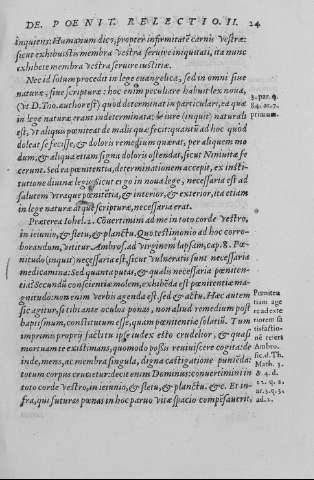 DE. POENIT. RELECTIO. II. 24
inquiens: Humanum dico, propter infirmitatẽ carnis vestræ:
sicut exhibuistis membra vestra seruire iniquitati, ita nunc
exhibete membra vestra seruire iustitiæ.
Nec id solum procedit in lege euangelica, sed in omni siue
naturæ, siue scripturæ: hoc enim peculiare habuit lex noua,
(vt D. Tho. author est) quòd determinat in particulari, ea quæ
in lege naturæ erant indeterminata: de iure (inquit) naturali
est, vt aliquis pœniteat de malis quæ fecit quantũ ad hoc quòd
doleat se fecisse, & doloris remedium quærat, per aliquem mo
dum, & aliqua etiam signa doloris ostendat, sicut Niniuitæ fe
cerunt. Sed ea pœnitentia, determinationem accepit, ex insti-
tutione diuinæ legis: sicut ergo in noua lege, necessaria est ad
salutem vtraque pœnitẽtia, & interior, & exterior, ita etiam
in lege naturæ atque scripturæ, necessaria erat.
Præterea Iohel. 2. Conuertimini ad me in toto corde vestro,
in ieiunio, & fletu, & planctu. Quo testimonio ad hoc corro-
borandum, vtitur Ambros. ad virginem lapsam, cap. 8. Pœni-
tudo (inquit) necessaria est, sicut vulneratis sunt necessaria
medicamina: Sed quanta putas, & qualis necessaria pœniten-
tia? Secundũ conscientiæ molem, exhibẽda est pœnitentiæ ma-
gnitudo: non enim verbis agenda est, sed & actu. Hæc autem
sic agitur, si tibi ante oculos ponas, non aliud remedium post
baptismum, constitutum esse, quam pœnitentiæ solatiũ. Tum
imprimis proprij facti tu ipse iudex esto crudelior, & quasi
mortuam te existimans, quomodo possis reuiuiscere cogita: de
inde, mens, ac membra singula, digna castigatione puniẽda:
totum corpus crucietur: dicit enim Dominus: conuertimini in
toto corde vestro, in ieiunio, & fletu, & planctu. &c. Et in-
fra, qui futuras pœnas in hoc paruo vitæ spacio compẽsauerit,
3. par. q.
84. ar. 7.
primum.
Pœnitẽtiam age
re ad exte
riorem sa
tisfactio-
nẽ refert
Ambro.
sic. d. Th.
Math. 3.
& 4. d.
ad. 2.